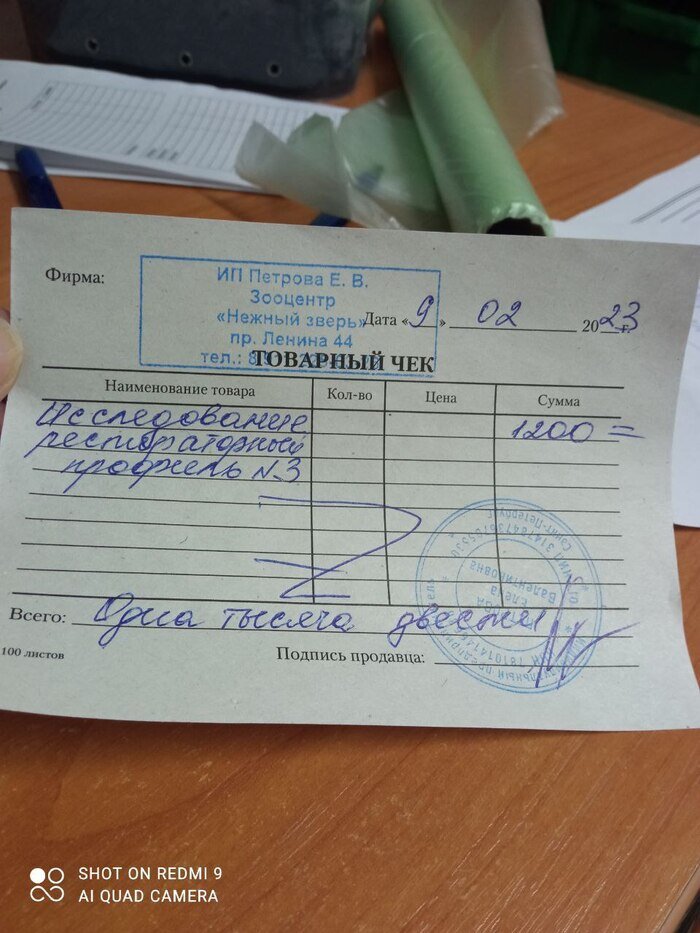 Фирма:
ИП Петрова Е. В.
Зооцентр
«Нежный зверь»
пр. Ленина 44
тел.: 8
Дата «9» 02 2023 г.
ТОВАРНЫЙ ЧЕК
Наименование товара Кол-во Цена Сумма
Исследование 1200=
респираторный
профиль N3
Всего: Одна тысяча двести
100 листов
Подпись продавца:
Санкт-Петербург
Валентиновна
SHOT ON REDMI 9
AI QUAD CAMERA